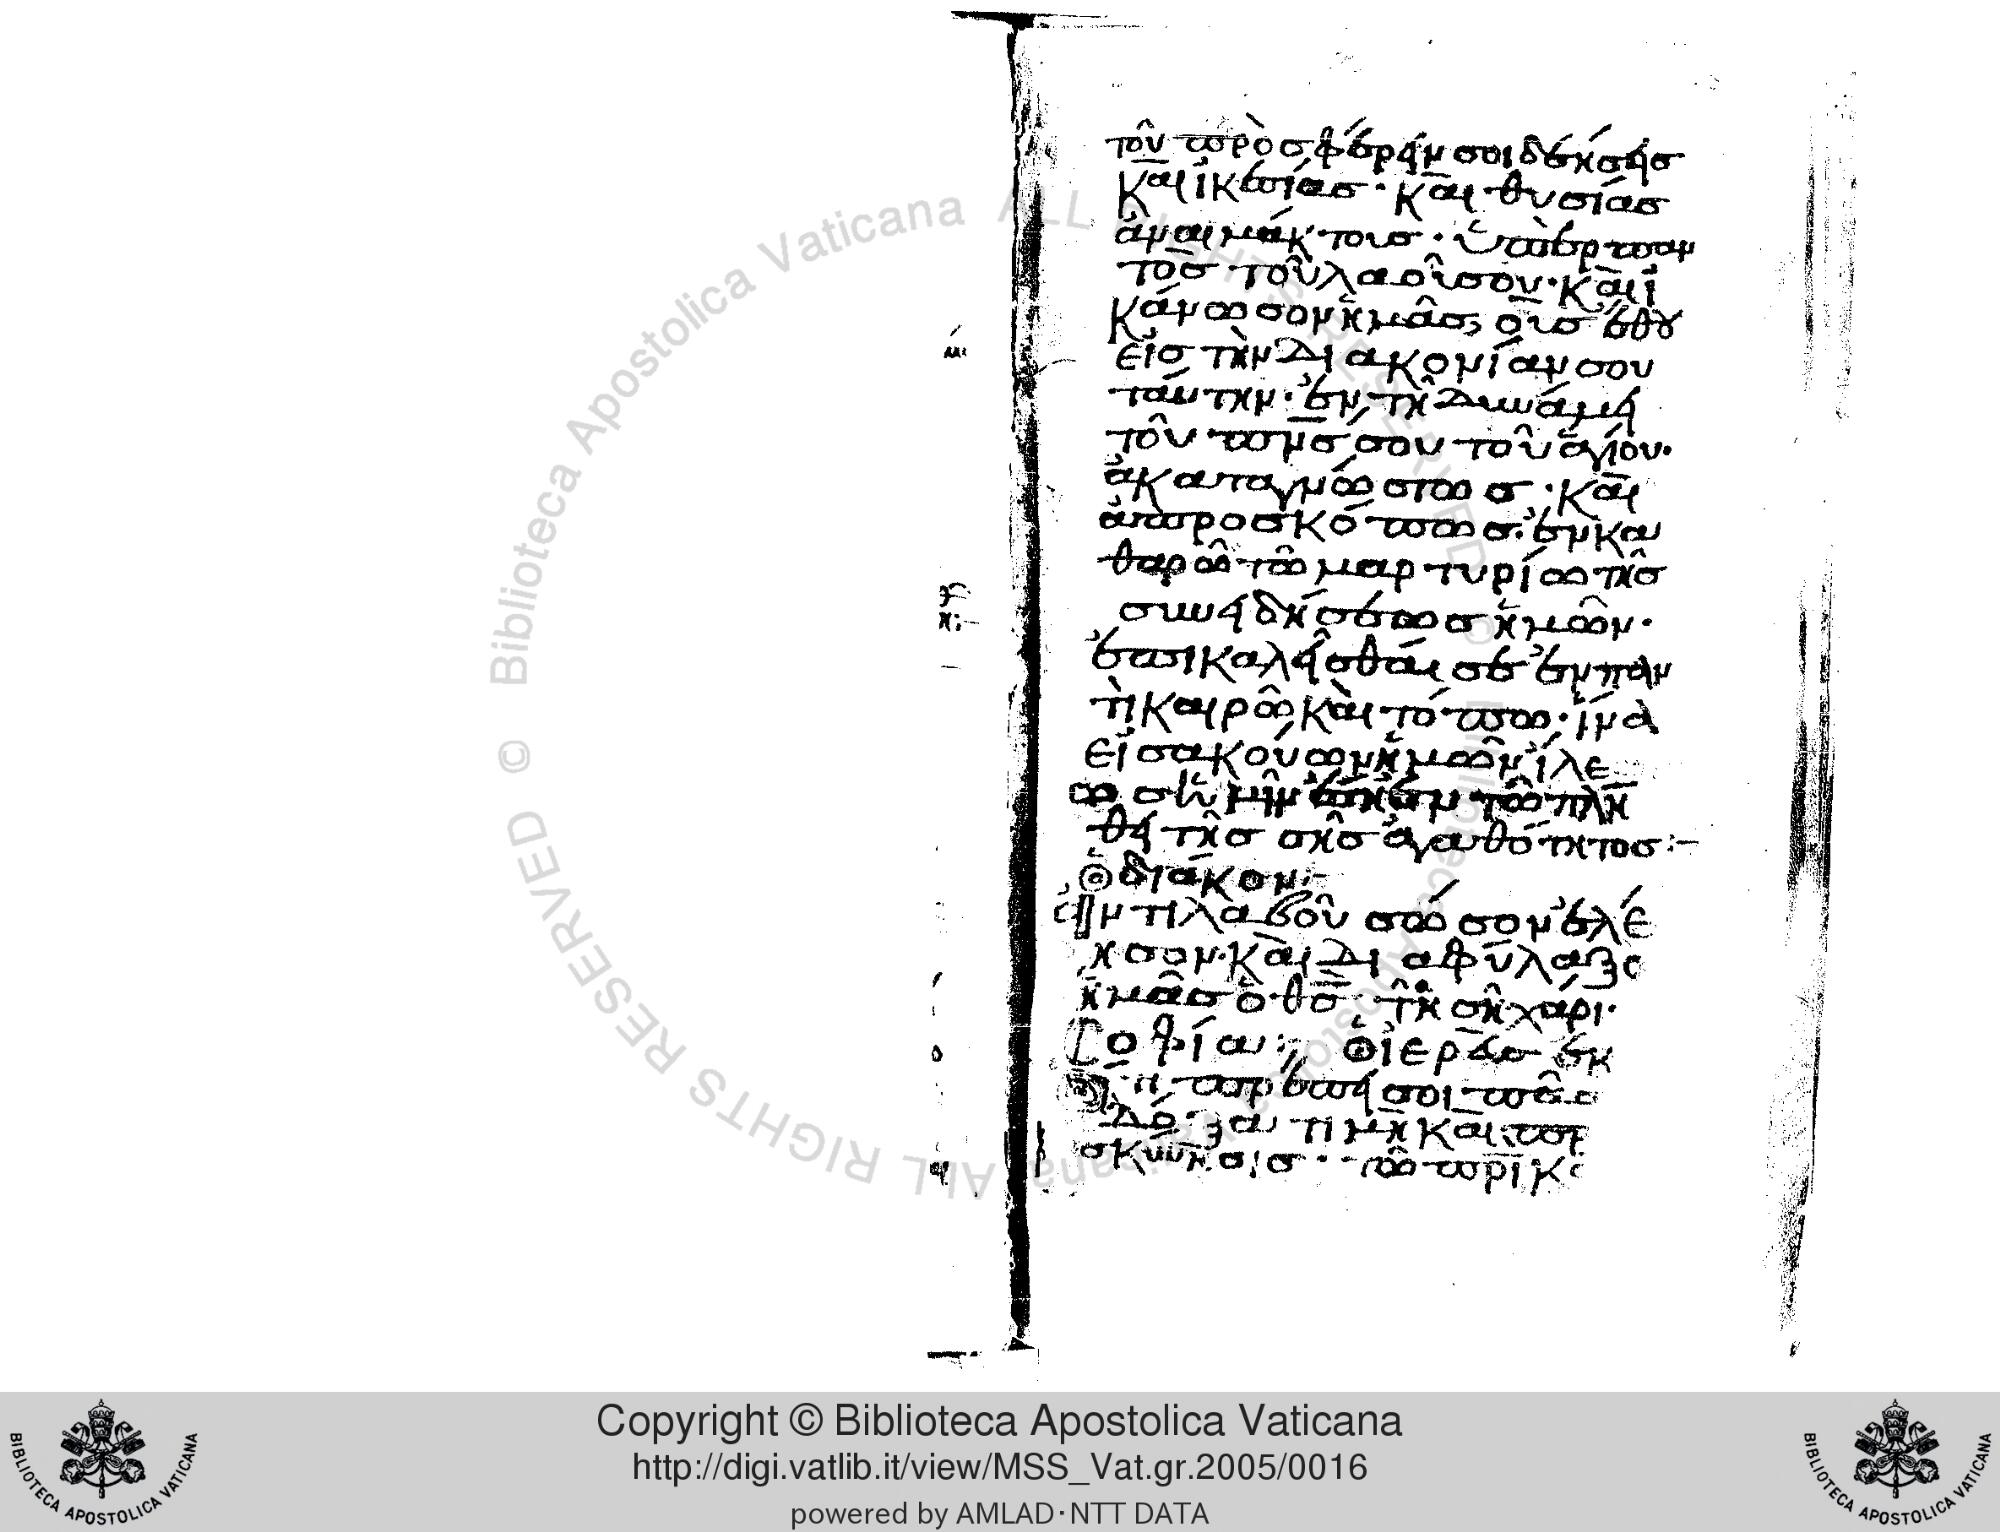 τοῦ προσφέρειν σοι δεήσεις
καὶ ἱκεσίας· καὶ θυσίας
ἀναιμάκτους· ὑπὲρ παν
τὸς τοῦ λαοῦ σου· καὶ ἱ
κάνωσον ἡμᾶς, οὓς ἔθου
εἰς τὴν διακονίαν σου
ταύτην· ἐν τῇ δυνάμει
τοῦ πνς σου τοῦ ἁγίου·
ἀκαταγνώστως· καὶ
ἀπροσκόπτως· ἐν κα
θαρῶ τῶ μαρτυρίω τῆς
συνειδήσεως ἡμῶν·
ἐπικαλεῖσθαί σε ἐν παν
τὶ καιρῶ καὶ τόπω· ἵνα
εἰσακούων ἡμῶν ἵλε
ως ἡμῖν ἔσῃ ἐν τῶ πλή
θει τῆς σῆς ἀγαθότητος:-
ὁ διάκον:-
ἀντιλαβοῦ σῶσον ἐλέ
ησον· καὶ διαφύλαξο
ἡμᾶς ὁ θς τῇ σῇ χάρι·
Σοφία: ὁ ἱερεὺς ἐκ
Ὅτι πρέπει σοι πᾶσ
δόξα τιμὴ καὶ πρ
σκύνησις· τῶ πρὶ κ
Biblioteca Apostolica Vaticana ALL RIGHTS RESERVED ©
Biblioteca Apostolica Vaticana ALL RIGHTS RESERVED ©
Copyright © Biblioteca Apostolica Vaticana
http://digi.vatlib.it/view/MSS_Vat.gr.2005/0016
powered by AMLAD·NTT DATA
BIBLIOTECA APOSTOLICA VATICANA
BIBLIOTECA APOSTOLICA VATICANA